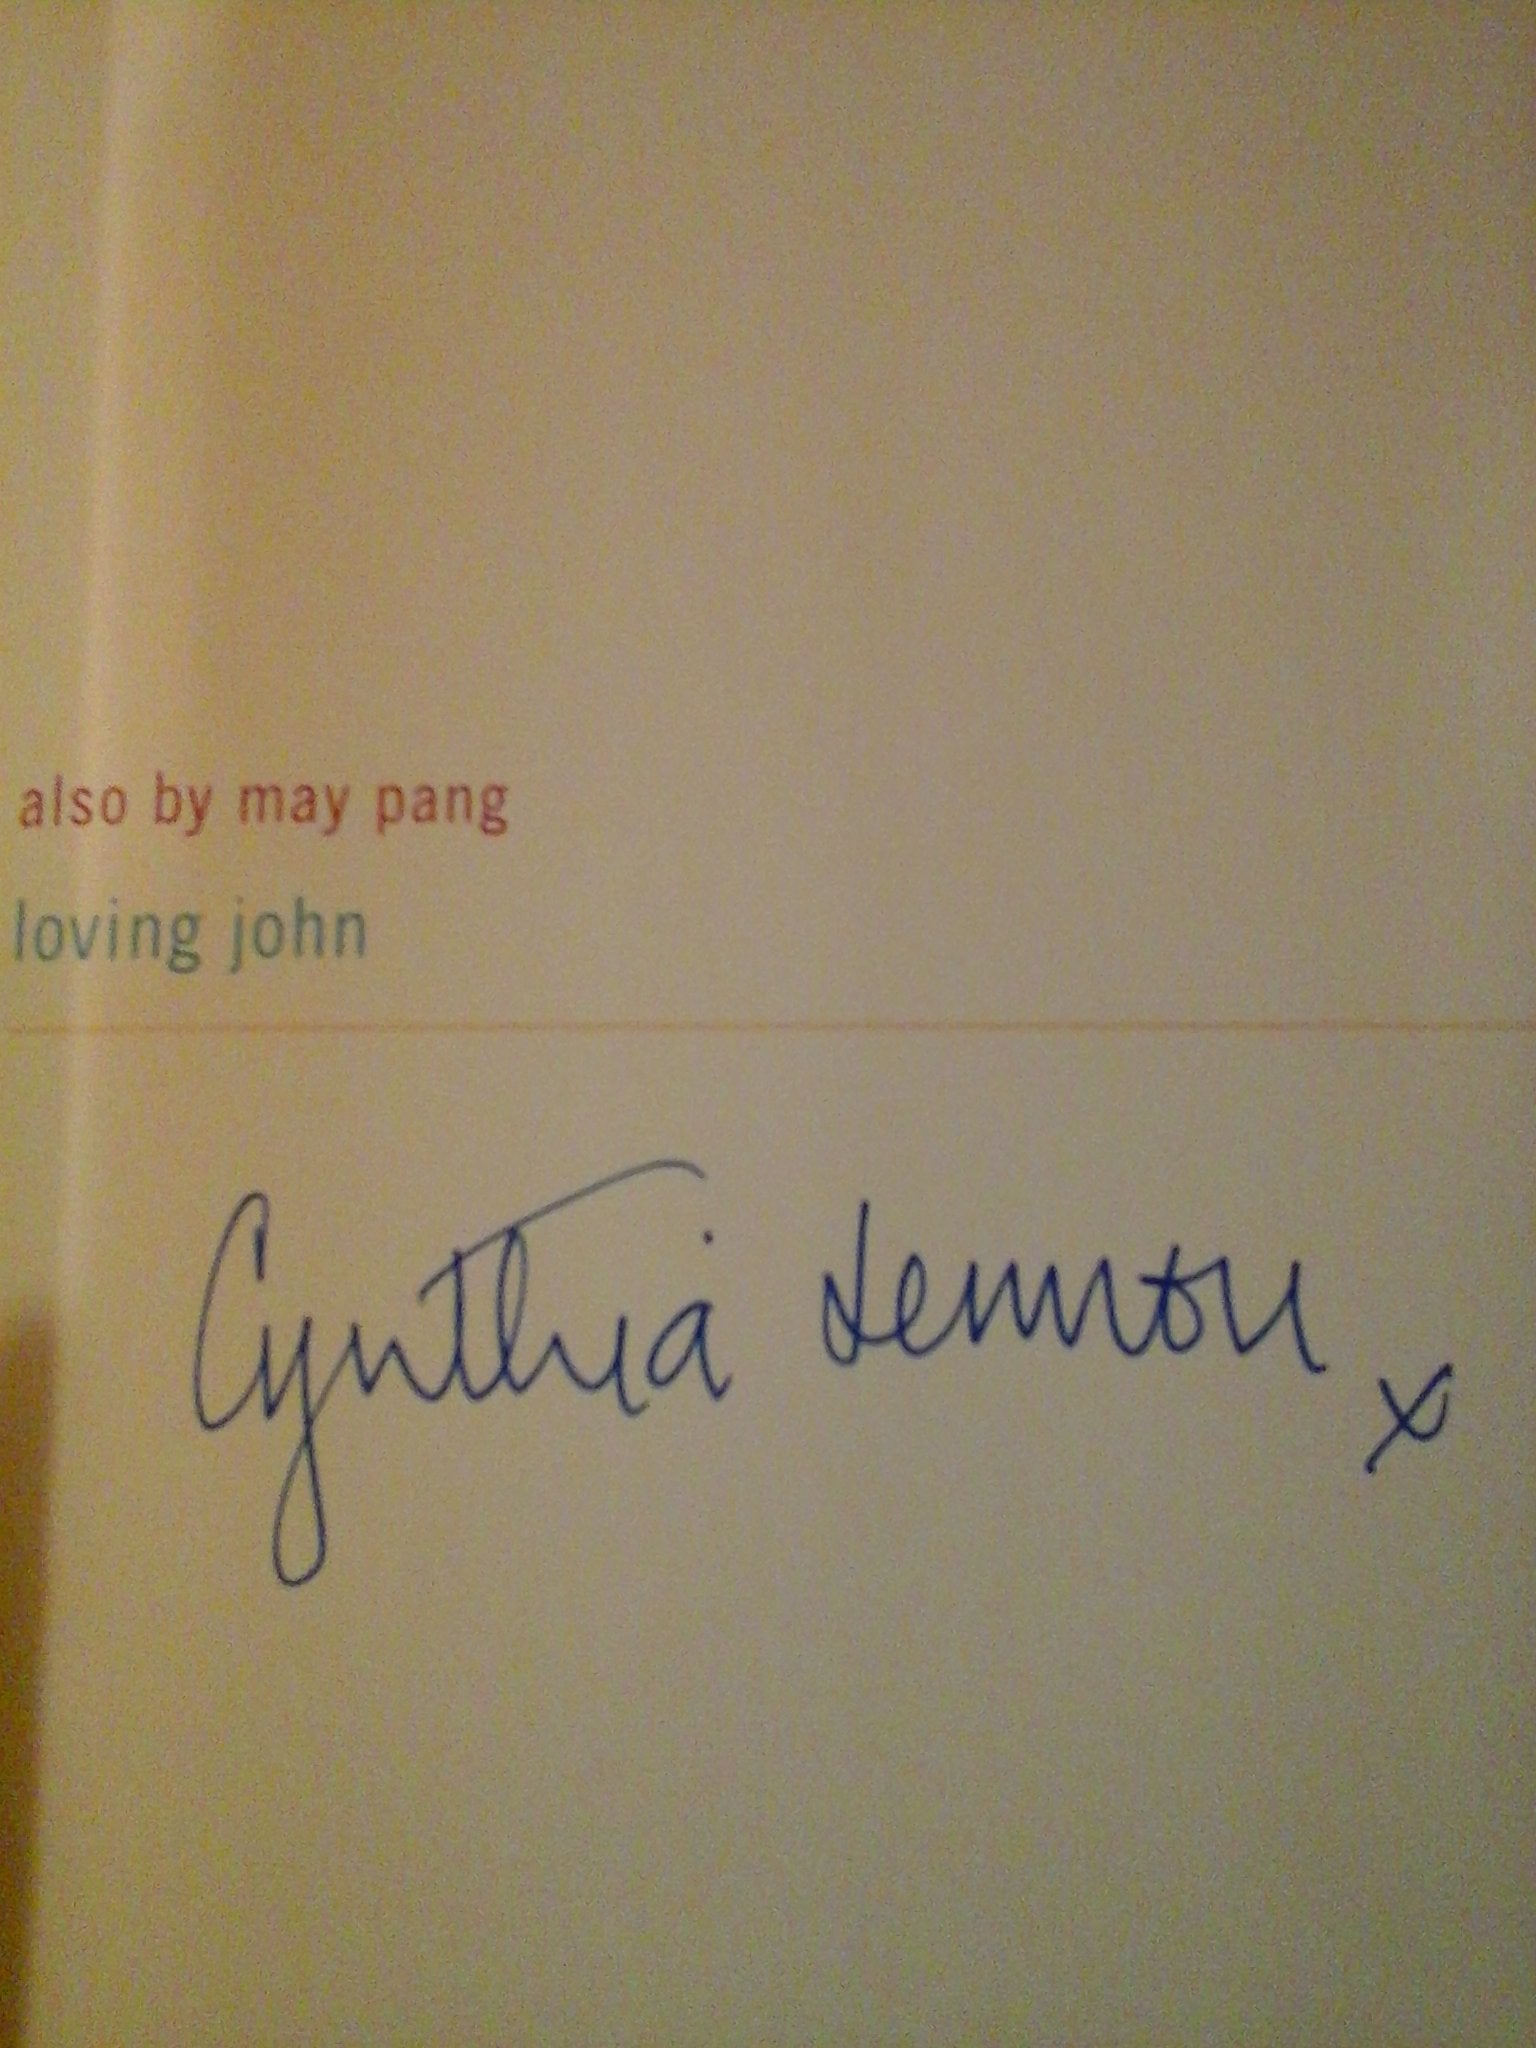 also by may pang
loving john
Cynthia Lennon
x